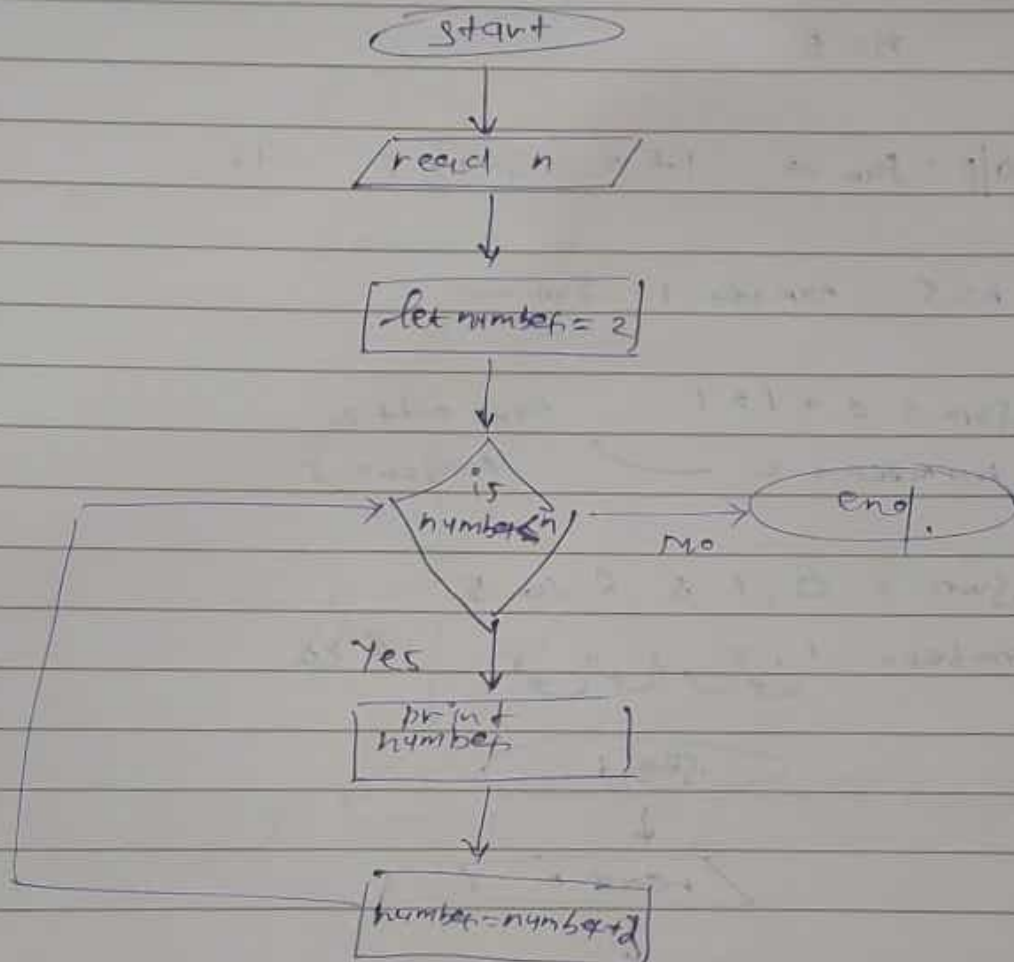 start
read n
let number = 2
is
number ≤ n
No
end.
Yes
print
number
number = number + 2